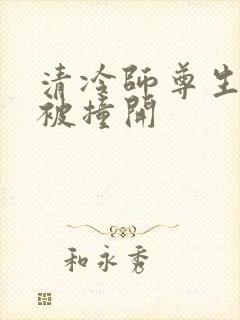 清冷师尊生
被撞开
和永秀